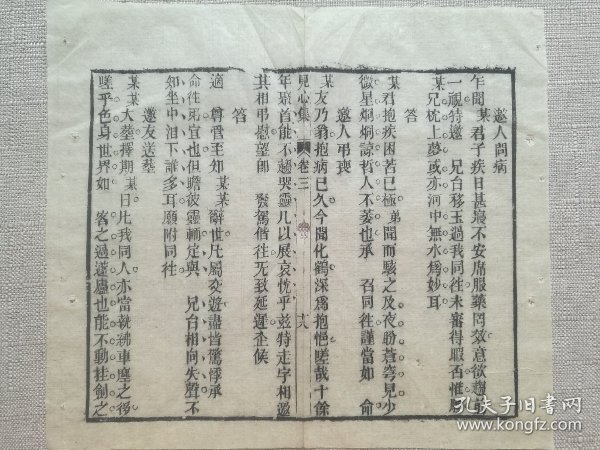 邀人問病
乍聞 某君子疾日甚寢不安席服藥罔效意欲趨
一視特邀 兄台移玉過我同往未審得暇否惟
某兄枕上夢或亦河中無水為妙耳
答
某君抱疾困苦已極弟聞而駭之及夜盼蒼穹見少
微星炯炯諒哲人不萎也承 召同往謹當如 命
邀人弔喪
某友乃翁抱病已久今聞化鶴深為抱悒嗟哉十餘
見心集 卷三 十六
年聚首能不趨哭靈几以展哀忱乎茲特走字相邀
其相弔慰望即 發駕偕往无致延遲企候
答
適 尊使至知某某辭世凡屬交遊盡皆驚悸承
命往弟宜也但瞻彼靈輀定與 兄台相向失聲不
知坐中泪下誰多耳願附同往
邀友送葬
某某大塟擇期某日凡我同人亦當執紼車塵之後
嗟乎色身世界如 客之過蘧廬也能不動挂劍之
孔夫子旧书网
www.kongfz.com